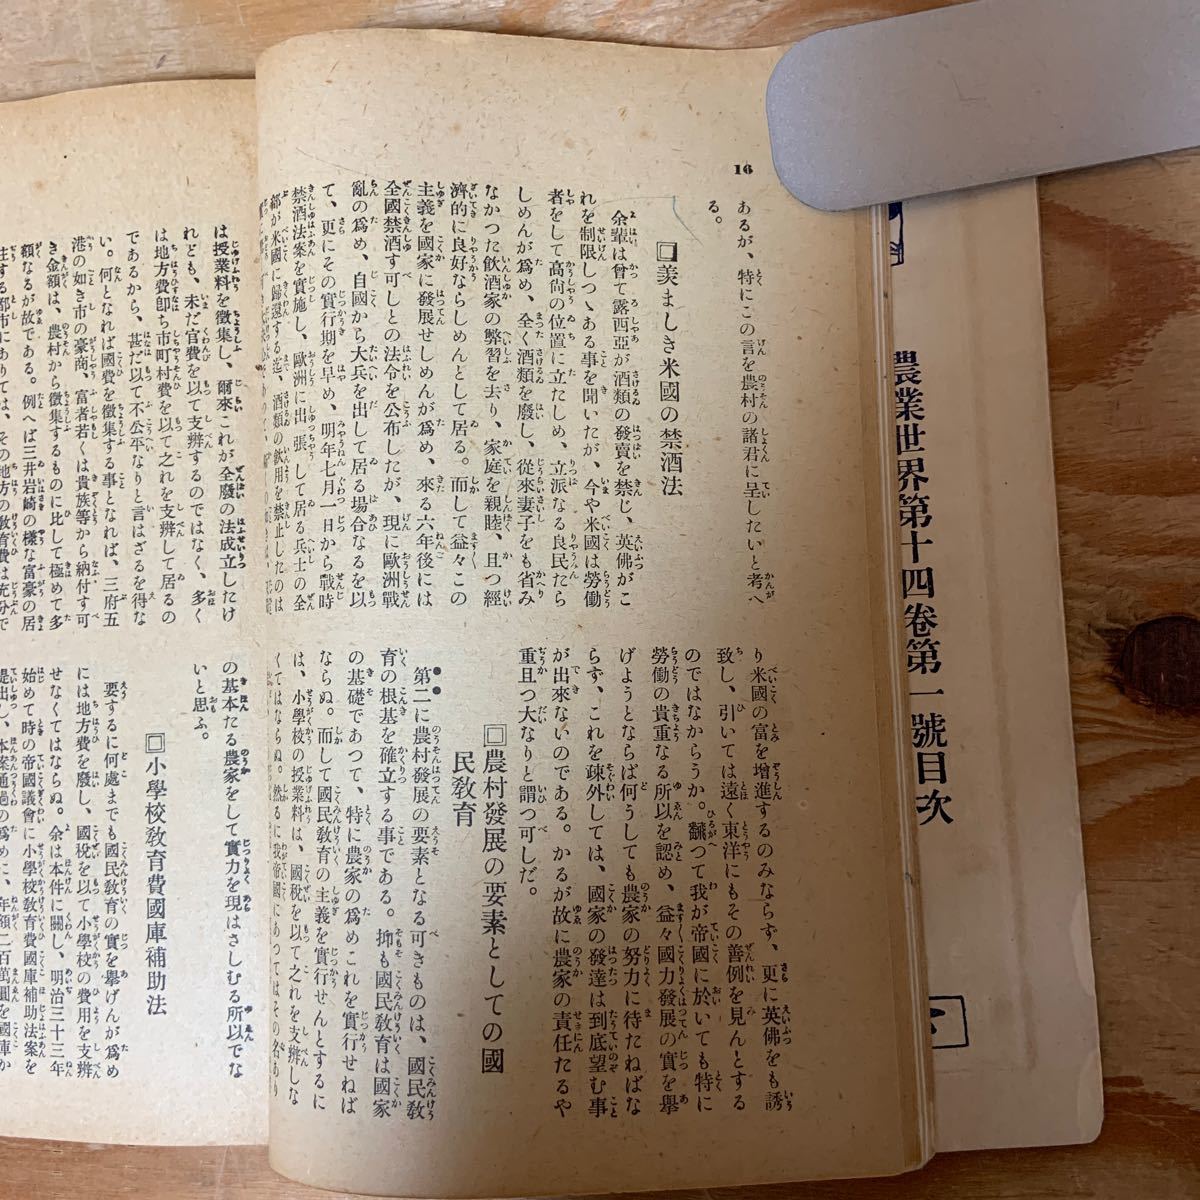 農業世界第十四卷第一號目次
16
あるが、特にこの言を農村の諸君に呈したいと考へ
る。
□羨ましき米國の禁酒法
余輩は曾て露西亞が酒類の發賣を禁じ、英佛がこ
れを制限しつゝある事を聞いたが、今や米國は勞働
者をして高尙の位置に立たしめ、立派なる良民たら
しめんが爲め、全く酒類を廢し、從來妻子をも省み
なかつた飮酒家の弊習を去り、家庭を親睦、且つ經
濟的に良好ならしめんとして居る。而して益々この
主義を國家に發展せしめんが爲め、來る六年後には
全國禁酒す可しとの法令を公布したが、現に歐洲戰
亂の爲め、自國から大兵を出して居る場合なるを以
て、更にその實行期を早め、明年七月一日から戰時
禁酒法案を實施し、歐洲に出張して居る兵士の全
部が米國に歸還する迄、酒類の飮用を禁止したのは
り米國の富を增進するのみならず、更に英佛をも誘
致し、引いては遠く東洋にもその善例を見んとする
のではなからうか。飜つて我が帝國に於いても特に
勞働の貴重なる所以を認め、益々國力發展の實を擧
げようとならば何うしても農家の努力に待たねばな
らず、これを疎外しては、國家の發達は到底望む事
が出來ないのである。かるが故に農家の責任たるや
重且つ大なりと謂つ可しだ。
□農村發展の要素としての國
民敎育
第二に農村發展の要素となる可きものは、國民敎
育の根基を確立する事である。抑も國民敎育は國家
の基礎であつて、特に農家の爲めこれを實行せねば
ならぬ。而して國民敎育の主義を實行せんとするに
は、小學校の授業料は、國稅を以て之れを支辨しな
くてはならぬ。然るに我帝國にあつてはその名あり
は授業料を徵集し、爾來これが全廢の法成立したけ
れども、未だ官費を以て支辨するのではなく、多く
は地方費卽ち市町村費を以て之れを支辨して居るの
であるから、甚だ以て不公平なりと言はざるを得な
い。何となれば國費を徵集する事となれば、三府五
港の如き市の豪商、富者若くは貴族等から納付す可
き金額は、農村から徵集するものに比して極めて多
額なるが故である。例へば三井岩崎の樣な富豪の居
住する都市にありては、その地方の敎育費は充分で
の基本たる農家をして實力を現はさしむる所以でな
いと思ふ。
□小學校敎育費國庫補助法
要するに何處までも國民敎育の實を擧げんが爲め
には地方費を廢し、國稅を以て小學校の費用を支辨
せなくてはならぬ。余は本件に關し、明治三十三年
始めて時の帝國議會に小學校敎育費國庫補助法案を
提出し、本案通過の爲めに、年額二百萬圓を國庫か